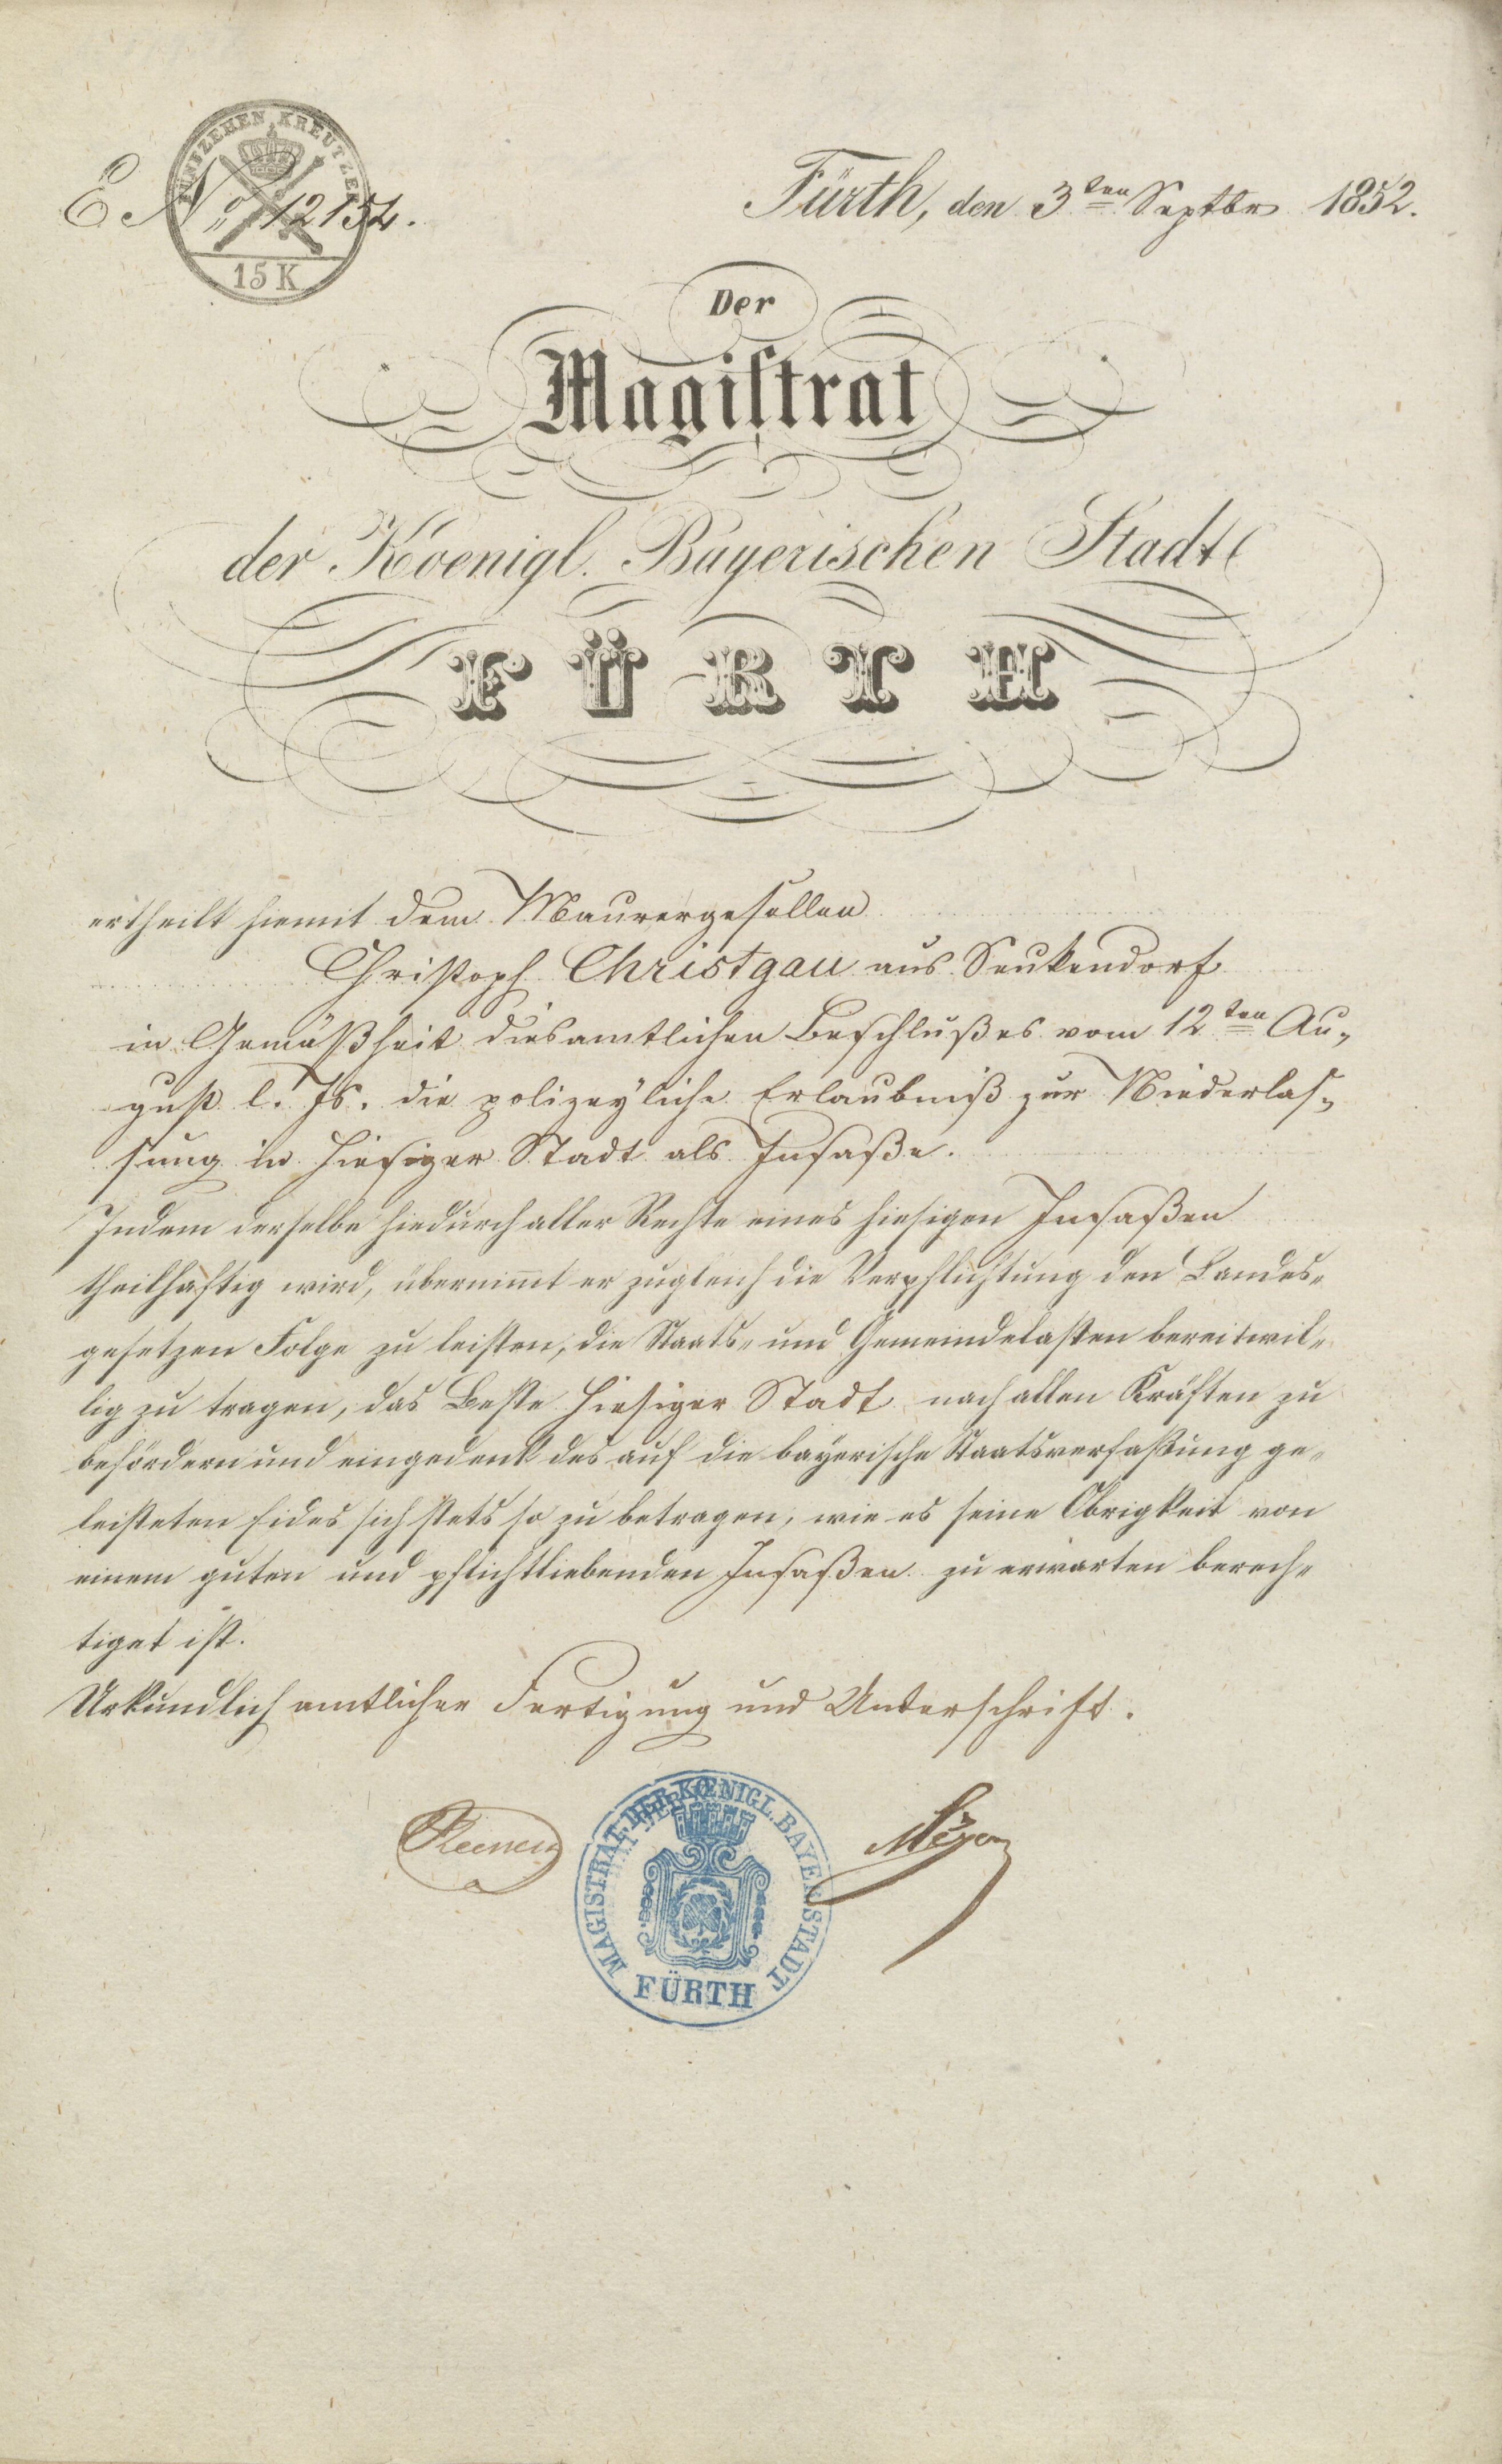 FÜNFZEHEN KREUTZER
15 K
E. No. 12154.
Fürth, den 3ten Septbr 1852.
Der
Magiſtrat
der Koenigl. Bayerischen Stadt
FÜRTH
ertheilt hiemit dem Maurergesellen
Christoph Christgau aus Seukendorf
in Gemäßheit diesamtlichen Beschlußes vom 12ten Au„
gust l. Js. die polizeyliche Erlaubniß zur Niederlas„
sung in hiesiger Stadt als Insaße.
Indem derselbe hiedurch aller Rechte eines hiesigen Insaßen
theilhaftig wird, übernimmt er zugleich die Verpflichtung den Landes„
gesetzen Folge zu leisten, die Staats„ und Gemeindelasten bereitwil„
lig zu tragen, das Beste hiesiger Stadt nach allen Kräften zu
befördern und eingedenk des auf die bayerische Staatsverfaßung ge„
leisteten Eides sich stets so zu betragen, wie es seine Obrigkeit von
einem guten und pflichtliebenden Insaßen zu erwarten berech„
tiget ist.
Urkundlich amtlicher Fertigung und Unterschrift.
MAGISTRAT DER KŒNIGL. BAYER. STADT
FÜRTH